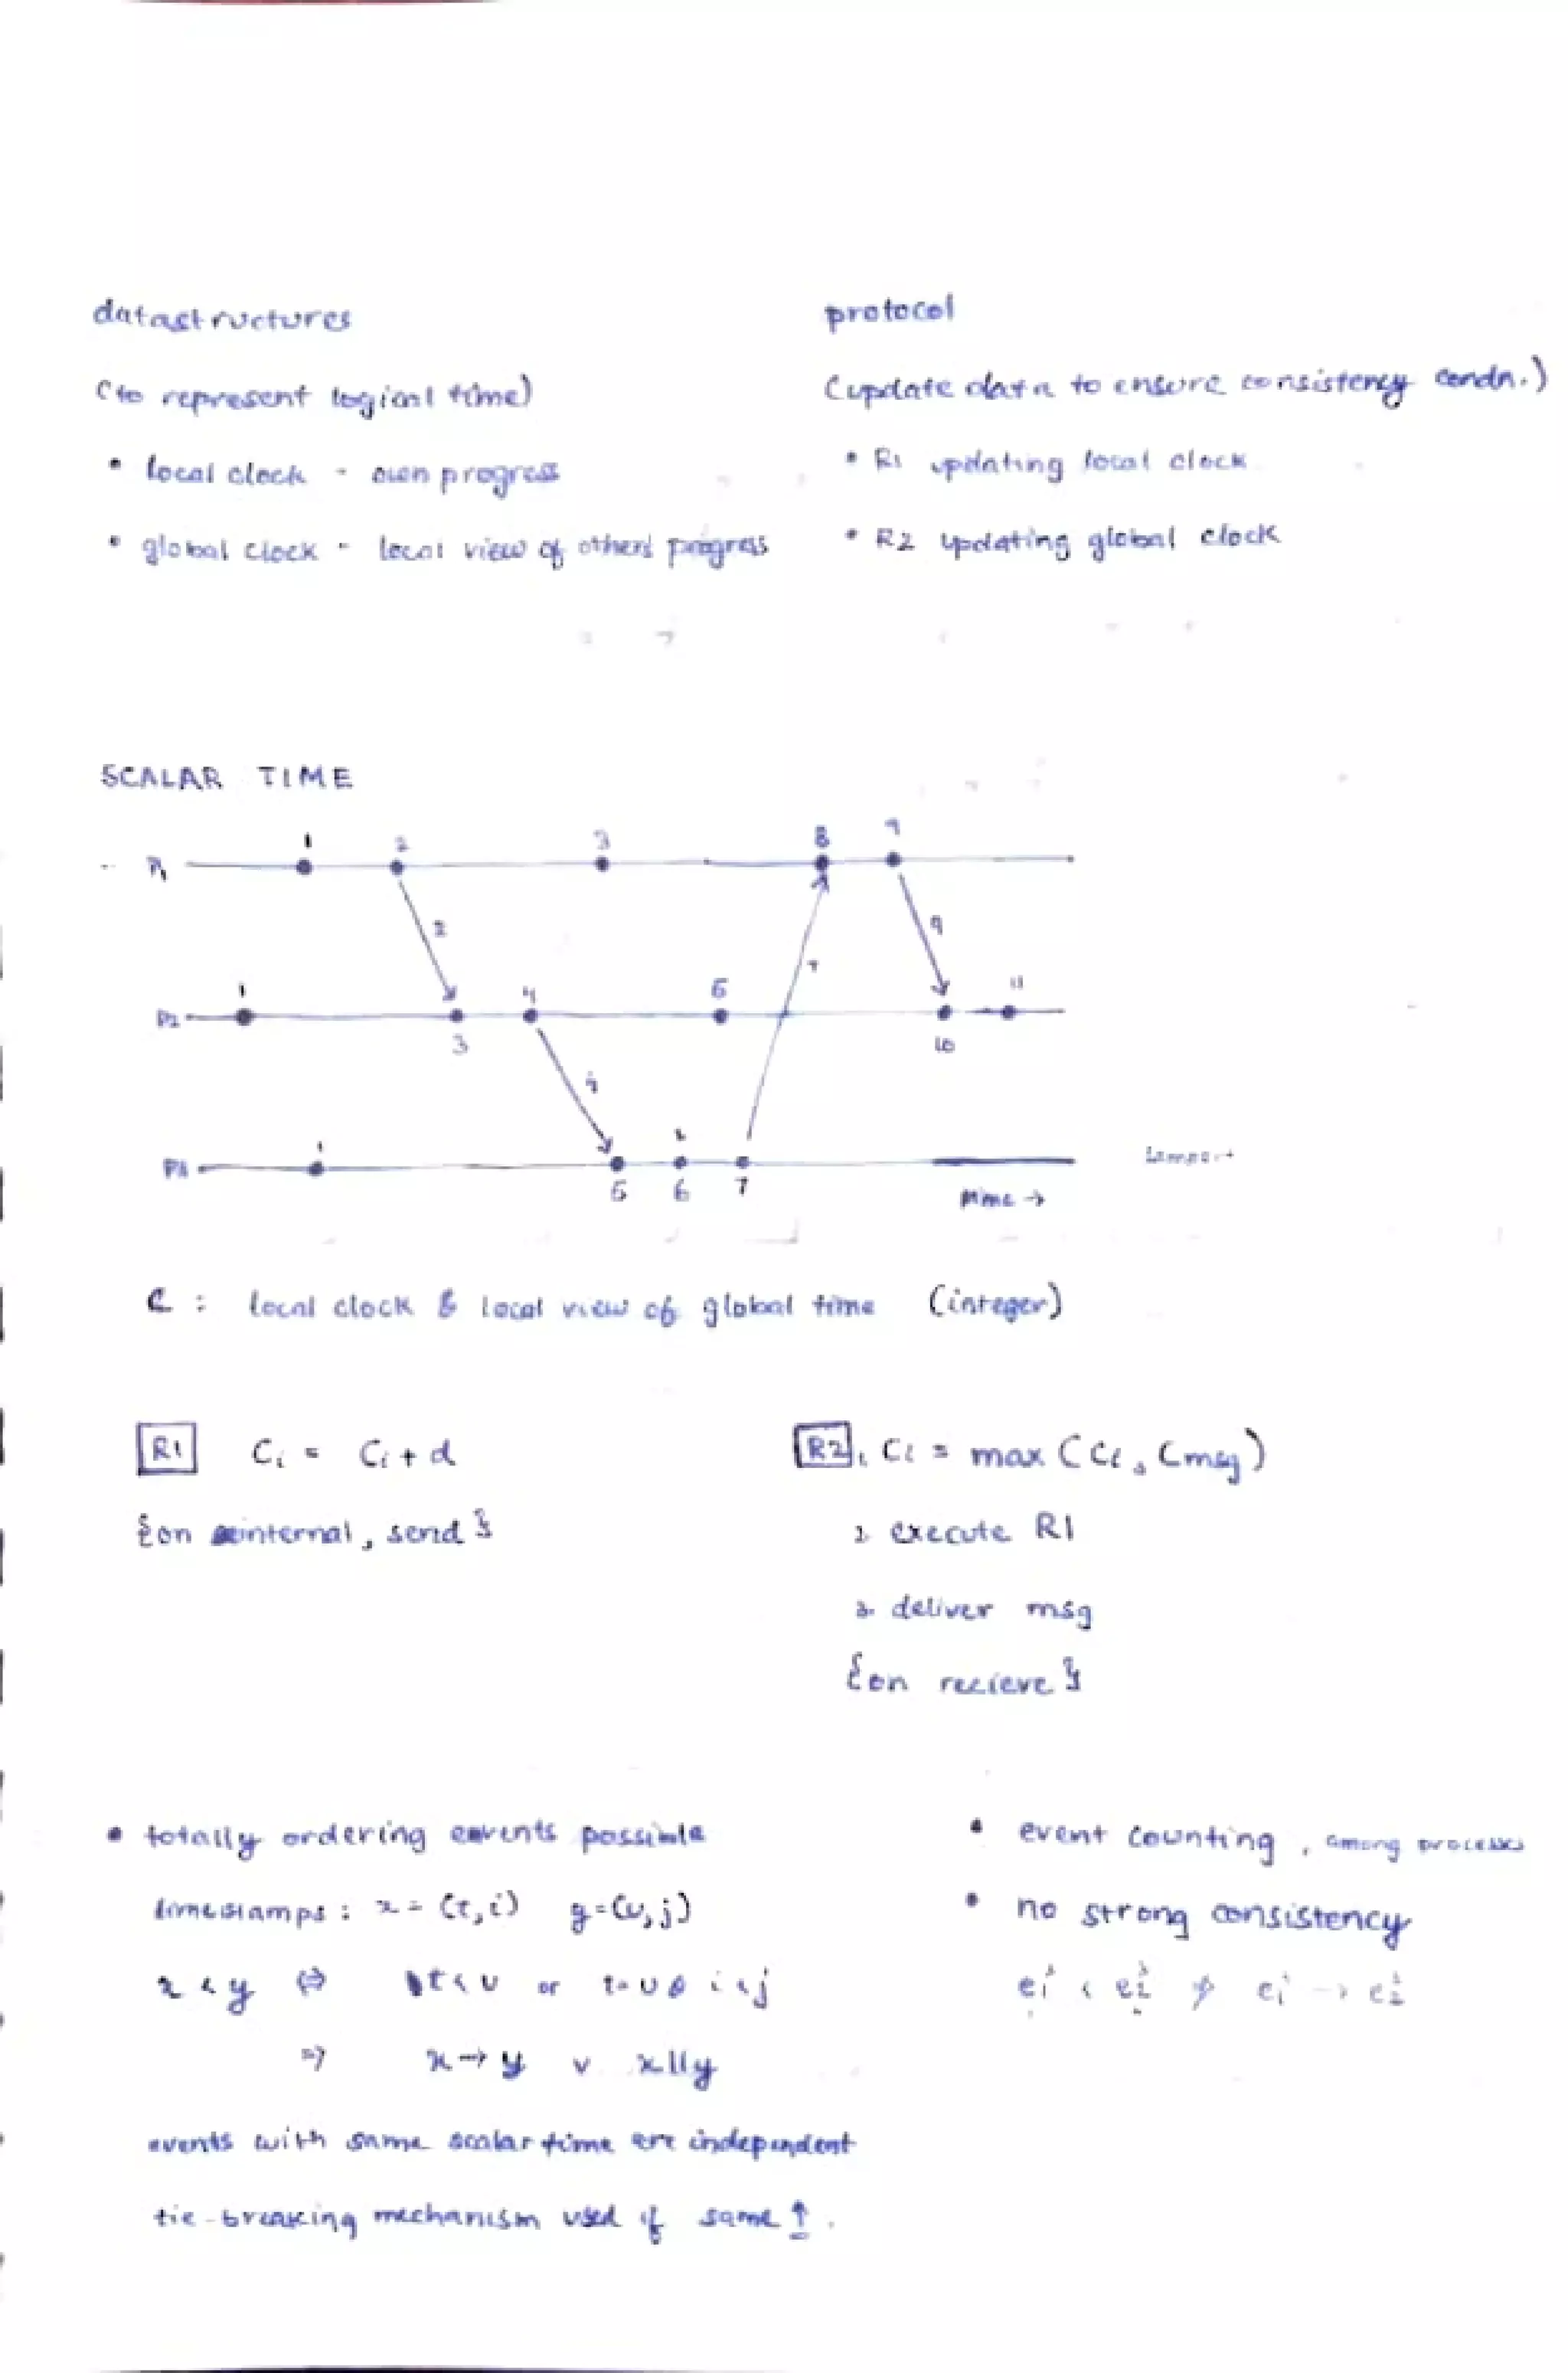 datastructures
(to represent logical time)
• local clock - own progress
• global clock - local view of others' progress
protocol
(update data to ensure consistency condn.)
• R1 updating local clock
• R2 updating global clock
SCALAR TIME
P1 1 2 3 8 9
2 7 9
P2 1 3 4 5 10 11
4
P3 1 5 6 7
Lamport
time →
C : local clock & local view of global time (integer)
R1 Ci = Ci + d
{on internal, send}
R2 1. Ci = max (Ci, Cmsg)
2. execute R1
3. deliver msg
{on recieve}
• totally ordering events possible
timestamps : x = (t, i) y = (u, j)
x < y ⇔ t < u or t = u & i < j
⇒ x → y v x || y
events with same scalar time are independent
tie-breaking mechanism used if same ↑.
• event counting, among processes
• no strong consistency